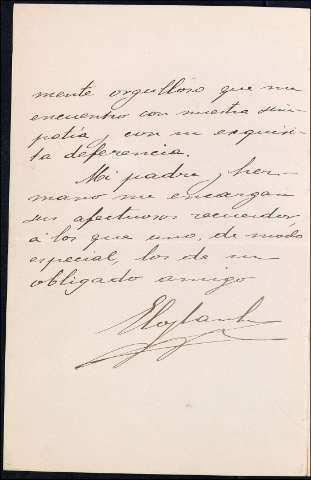 mente orgulloso que me
encuentro con nuestra sim-
patía y con su exquisi-
ta deferencia.
Mi padre y her-
mano me encargan
sus afectuosos recuerdos,
á los que uno, de modo
especial, los de su
obligado amigo